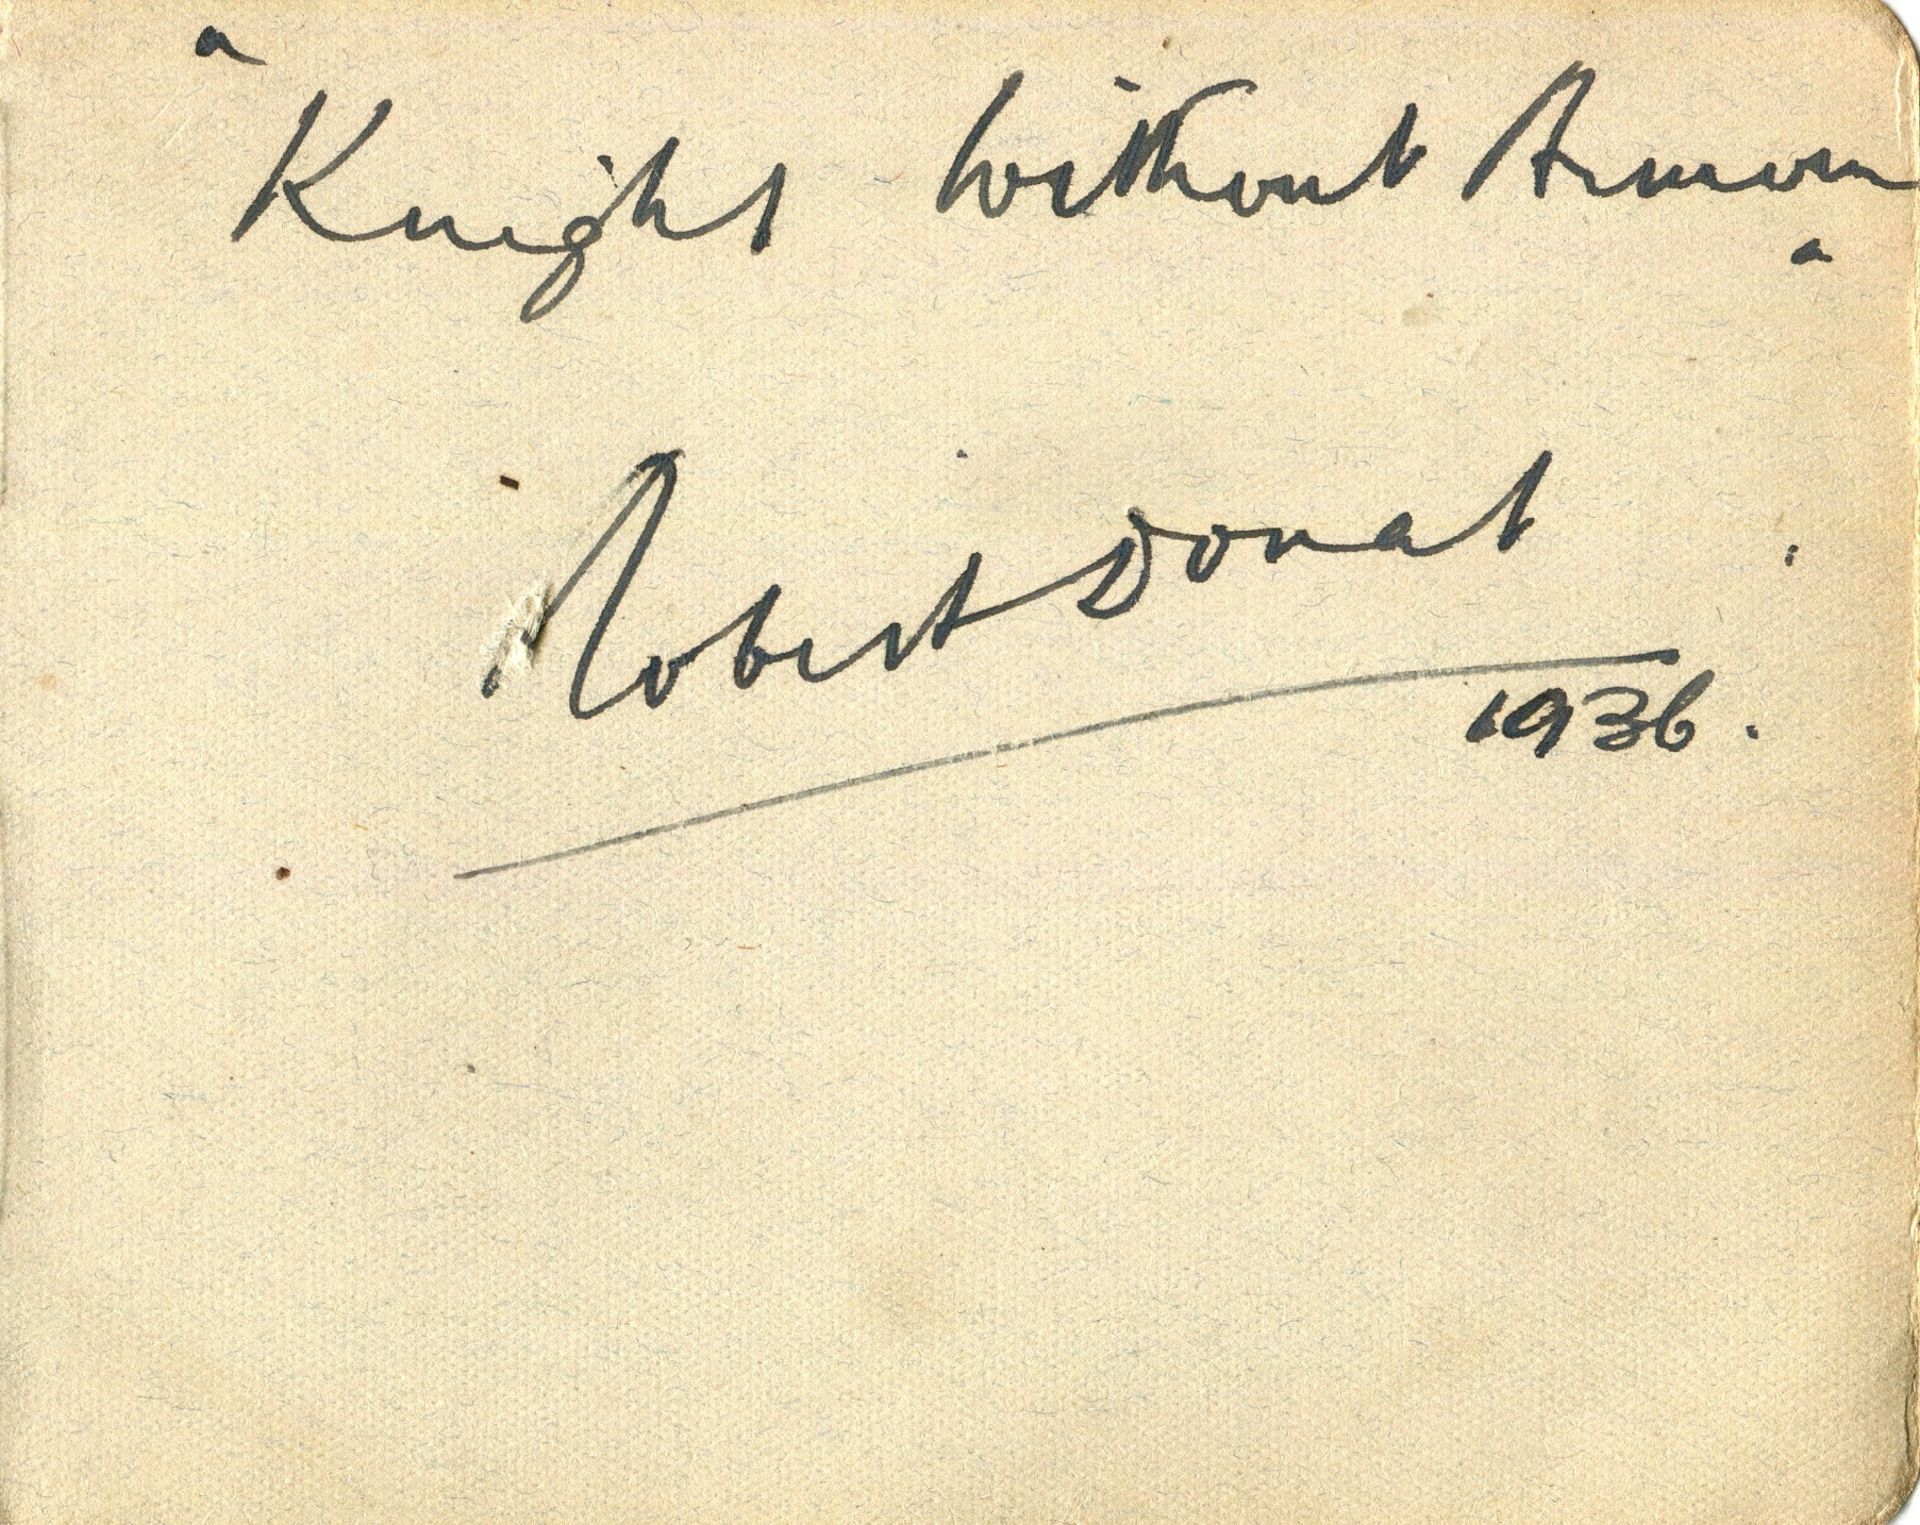 "Knight Without Armour"
Robert Donat
1936.